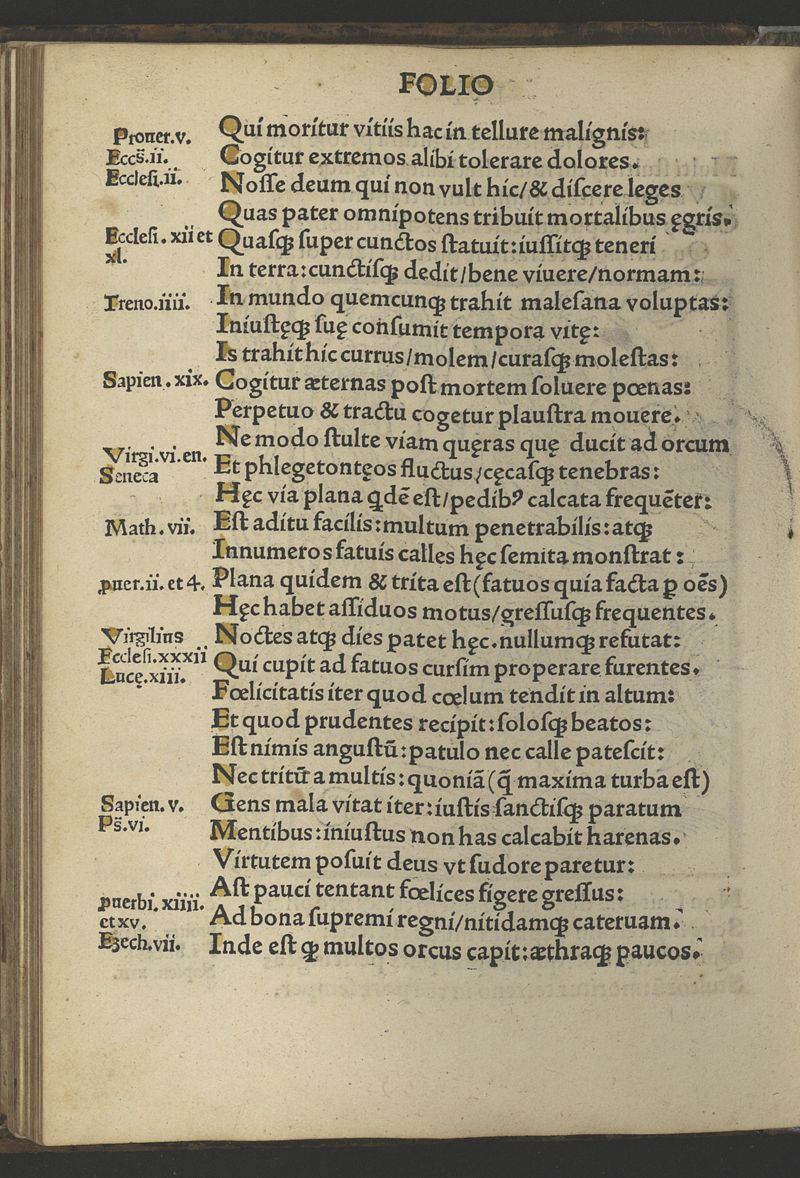 FOLIO
Prouer.v.
Qui moritur vitiis hac in tellure malignis:
Eccs̄.ii.
Cogitur extremos alibi tolerare dolores.
Ecclesi.ii.
Noſſe deum qui non vult hic/& diſcere leges
Quas pater omnipotens tribuit mortalibus ęgris.
Eccleſi.xii et
Quaſqꝫ ſuper cunctos ſtatuit:iuſſitqꝫ teneri
xl.
In terra:cunctiſqꝫ dedit/bene viuere/normam:
Treno.iiii.
In mundo quemcunqꝫ trahit maleſana voluptas:
Iniuſtęqꝫ ſuę conſumit tempora vitę:
Is trahit hic currus/molem/curaſqꝫ moleſtas:
Sapien.xix.
Cogitur æternas poſt mortem ſoluere pœnas:
Perpetuo & tractu cogetur plauſtra mouere.
Ne modo ſtulte viam quęras quę ducit ad orcum
Virgi.vi.en.
Et phlegetontęos fluctus/cęcaſqꝫ tenebras:
Seneca
Hęc via plana qdē eſt/pedibꝰ calcata frequēter:
Math.vii.
Eſt aditu facilis:multum penetrabilis:atqꝫ
Innumeros fatuis calles hęc ſemita monſtrat:
ꝓuer.ii.et 4.
Plana quidem & trita eſt(fatuos quia facta ꝑ oēs)
Hęc habet aſſiduos motus/greſſuſqꝫ frequentes.
Virgilius
Noctes atqꝫ dies patet hęc.nullumqꝫ refutat:
Eccleſi.xxxii
Qui cupit ad fatuos curſim properare furentes.
Lucę.xiii.
Fœlicitatis iter quod cœlum tendit in altum:
Et quod prudentes recipit:ſoloſqꝫ beatos:
Eſt nimis anguſtū:patulo nec calle pateſcit:
Nec tritū a multis:quoniā(q̄ maxima turba eſt)
Sapien.v.
Gens mala vitat iter:iuſtis ſanctiſqꝫ paratum
Ps̄.vi.
Mentibus:iniuſtus non has calcabit harenas.
Virtutem poſuit deus vt ſudore paretur:
Aſt pauci tentant fœlices figere greſſus:
ꝓuerbi.xiiii.
et xv.
Ad bona ſupremi regni/nitidamqꝫ cateruam.
Ezech.vii.
Inde eſt qꝫ multos orcus capit:æthraqꝫ paucos.